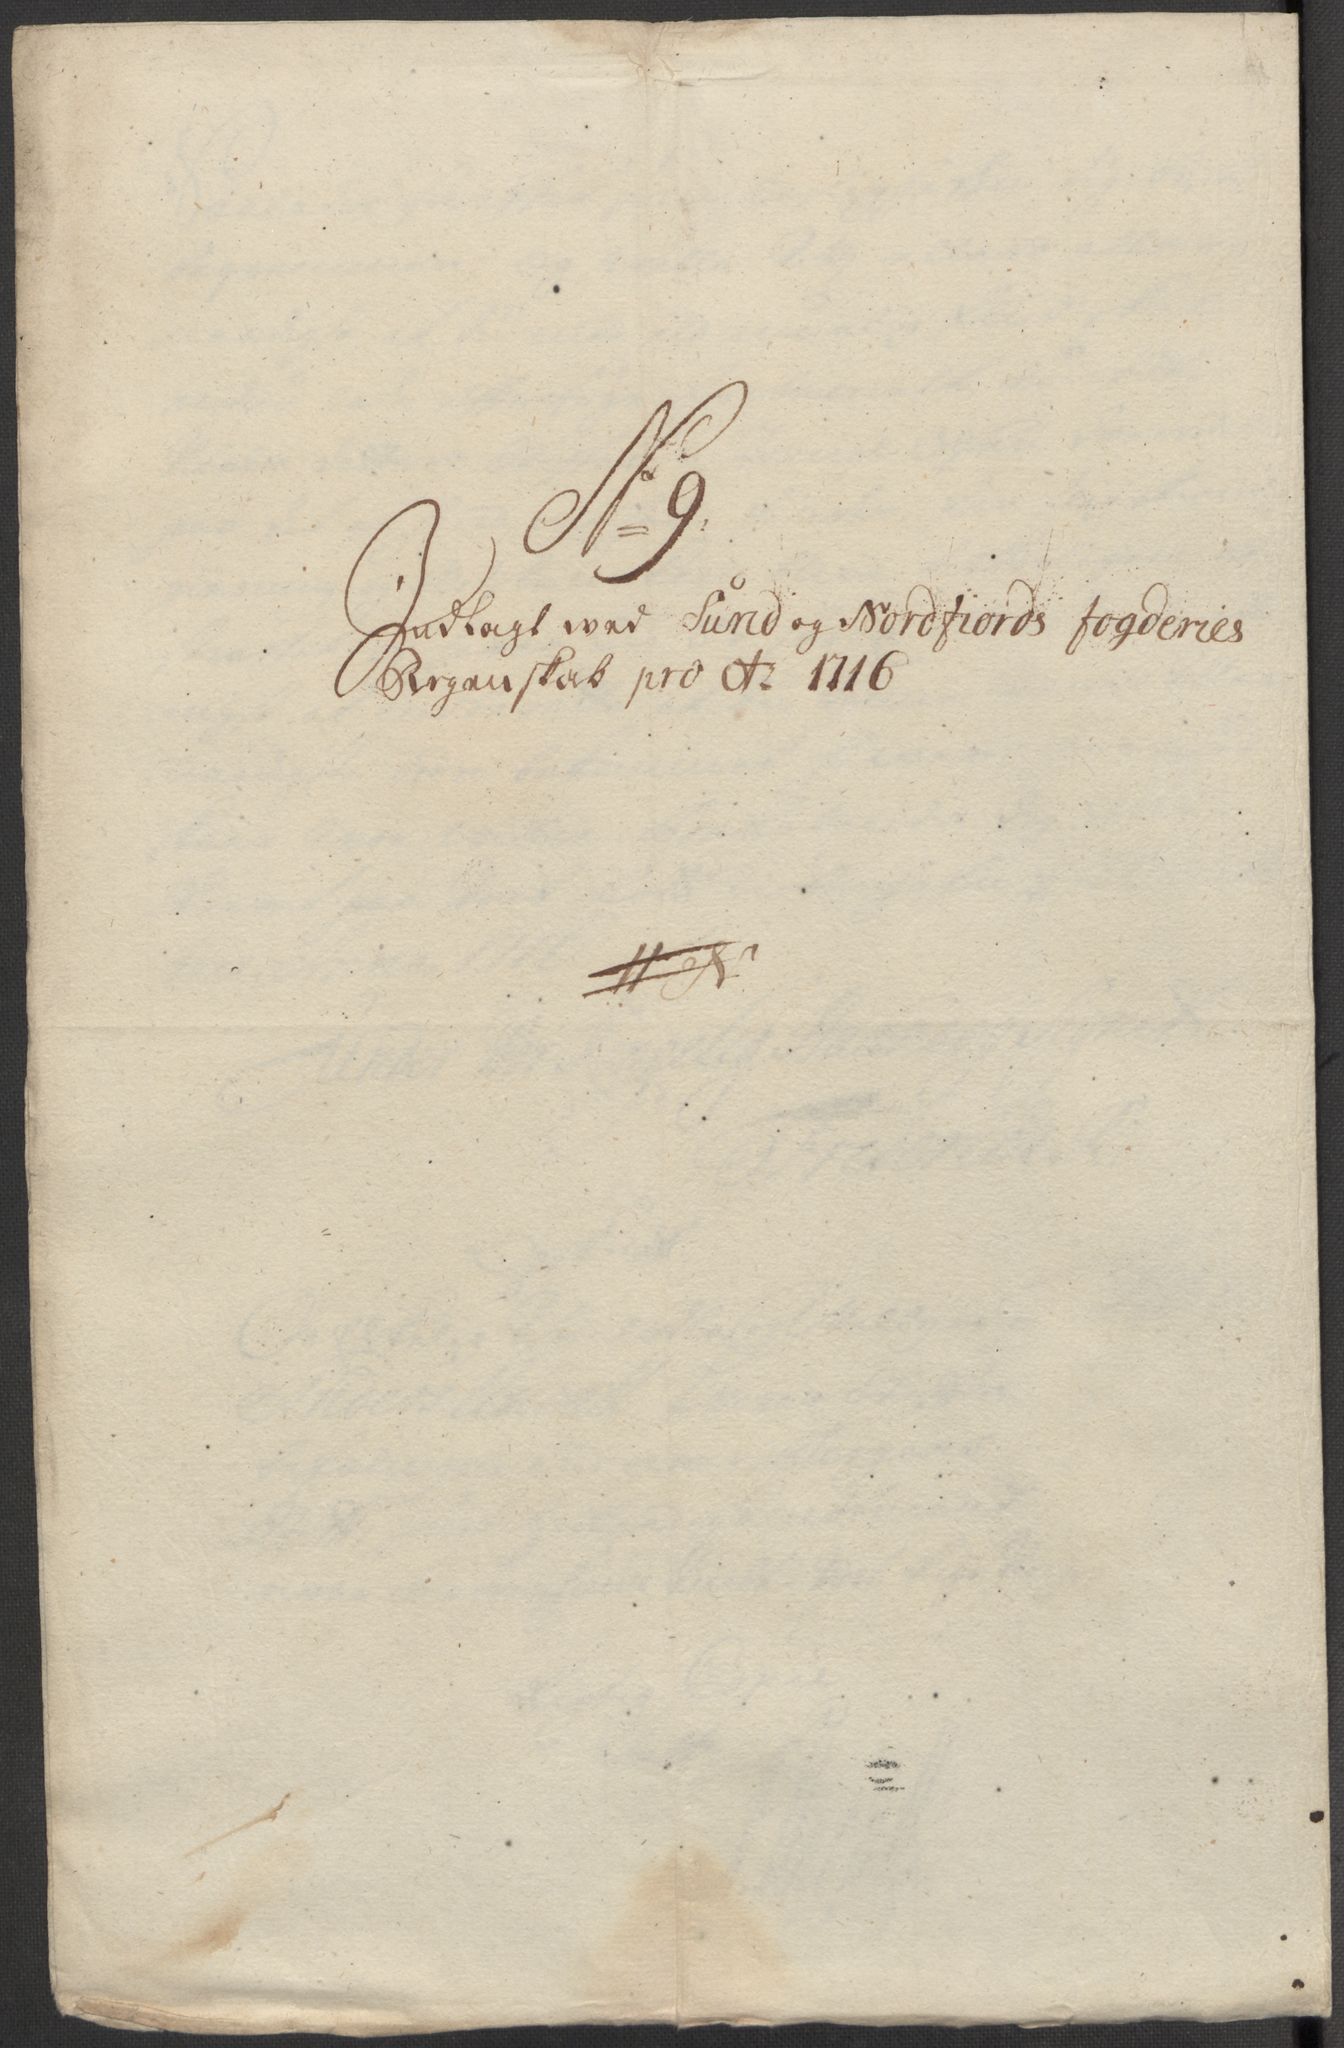 No 9.
Indlagt wed Sund og Nordfiords fogderies
Regenskab pro Ao 1716